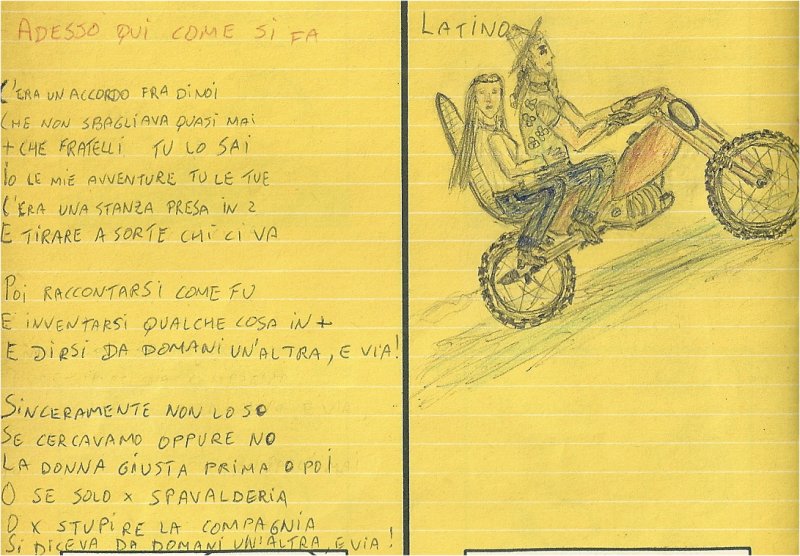 ADESSO QUI COME SI FA
C'ERA UN ACCORDO FRA DI NOI
CHE NON SBAGLIAVA QUASI MAI
+ CHE FRATELLI TU LO SAI
IO LE MIE AVVENTURE TU LE TUE
C'ERA UNA STANZA PRESA IN 2
E TIRARE A SORTE CHI CI VA
POI RACCONTARSI COME FU
E INVENTARSI QUALCHE COSA IN +
E DIRSI DA DOMANI UN'ALTRA, E VIA!
SINCERAMENTE NON LO SO
SE CERCAVAMO OPPURE NO
LA DONNA GIUSTA PRIMA O POI
O SE SOLO x SPAVALDERIA
O x STUPIRE LA COMPAGNIA
SI DICEVA DA DOMANI UN'ALTRA, E VIA!
LATINO